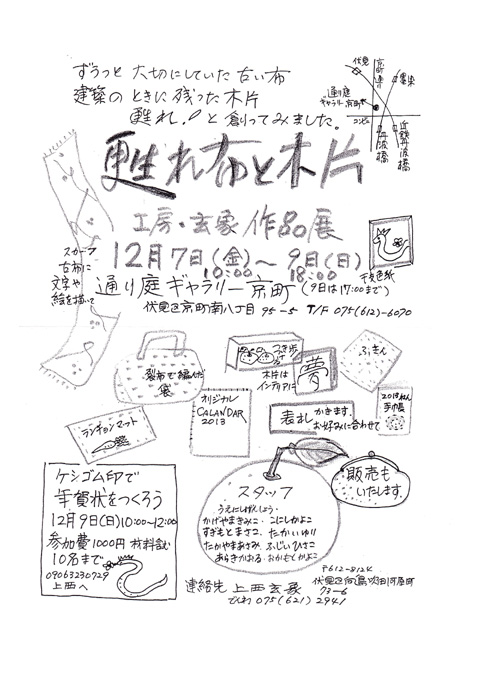 ずうっと 大切にしていた 古い布
建築の ときに 残った 木片
甦れ!と 創ってみました。
甦れ布と木片
工房・玄象 作品展
12月7日(金)~9日(日)
10:00 18:00
通り庭ギャラリー京町(9日は17:00まで)
伏見区京町南八丁目 95-5 T/F 075(612)-6070
伏見
京町通り
墨染
通り庭
ギャラリー京町
コンビニ
丹波橋
近鉄丹波橋
スカーフ
古布に
文字や
絵を描いて
干支色紙
裂布で編んだ
袋
オリジナル
CALANDAR
2013
木片は
インテリアに
夢
ふきん
表札 かきます。
お好みに合わせて
2013ねん
手帳
ランチョンマット
ケシゴム印で
年賀状をつくろう
12月9日(日)10:00~12:00
参加費1000円 材料含む
10名まで
09063230729
上西へ
スタッフ
うえにしげんしょう・
かげやまきみこ・こにしかよこ
すぎもとまさこ・たかいゆり
たかやまあさみ・ふじいひさこ
あらきかおる・おかもとかよこ
販売も
いたします。
連絡先 上西玄象
でんわ 075(621)2941
〒612-8124
伏見区向島吹田河原町
73-6